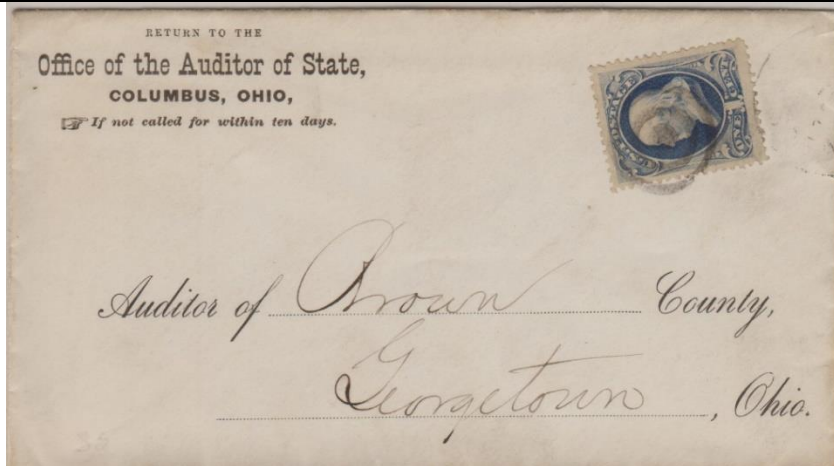 RETURN TO THE
Office of the Auditor of State,
COLUMBUS, OHIO,
☞ If not called for within ten days.
Auditor of Brown County,
Georgetown, Ohio.